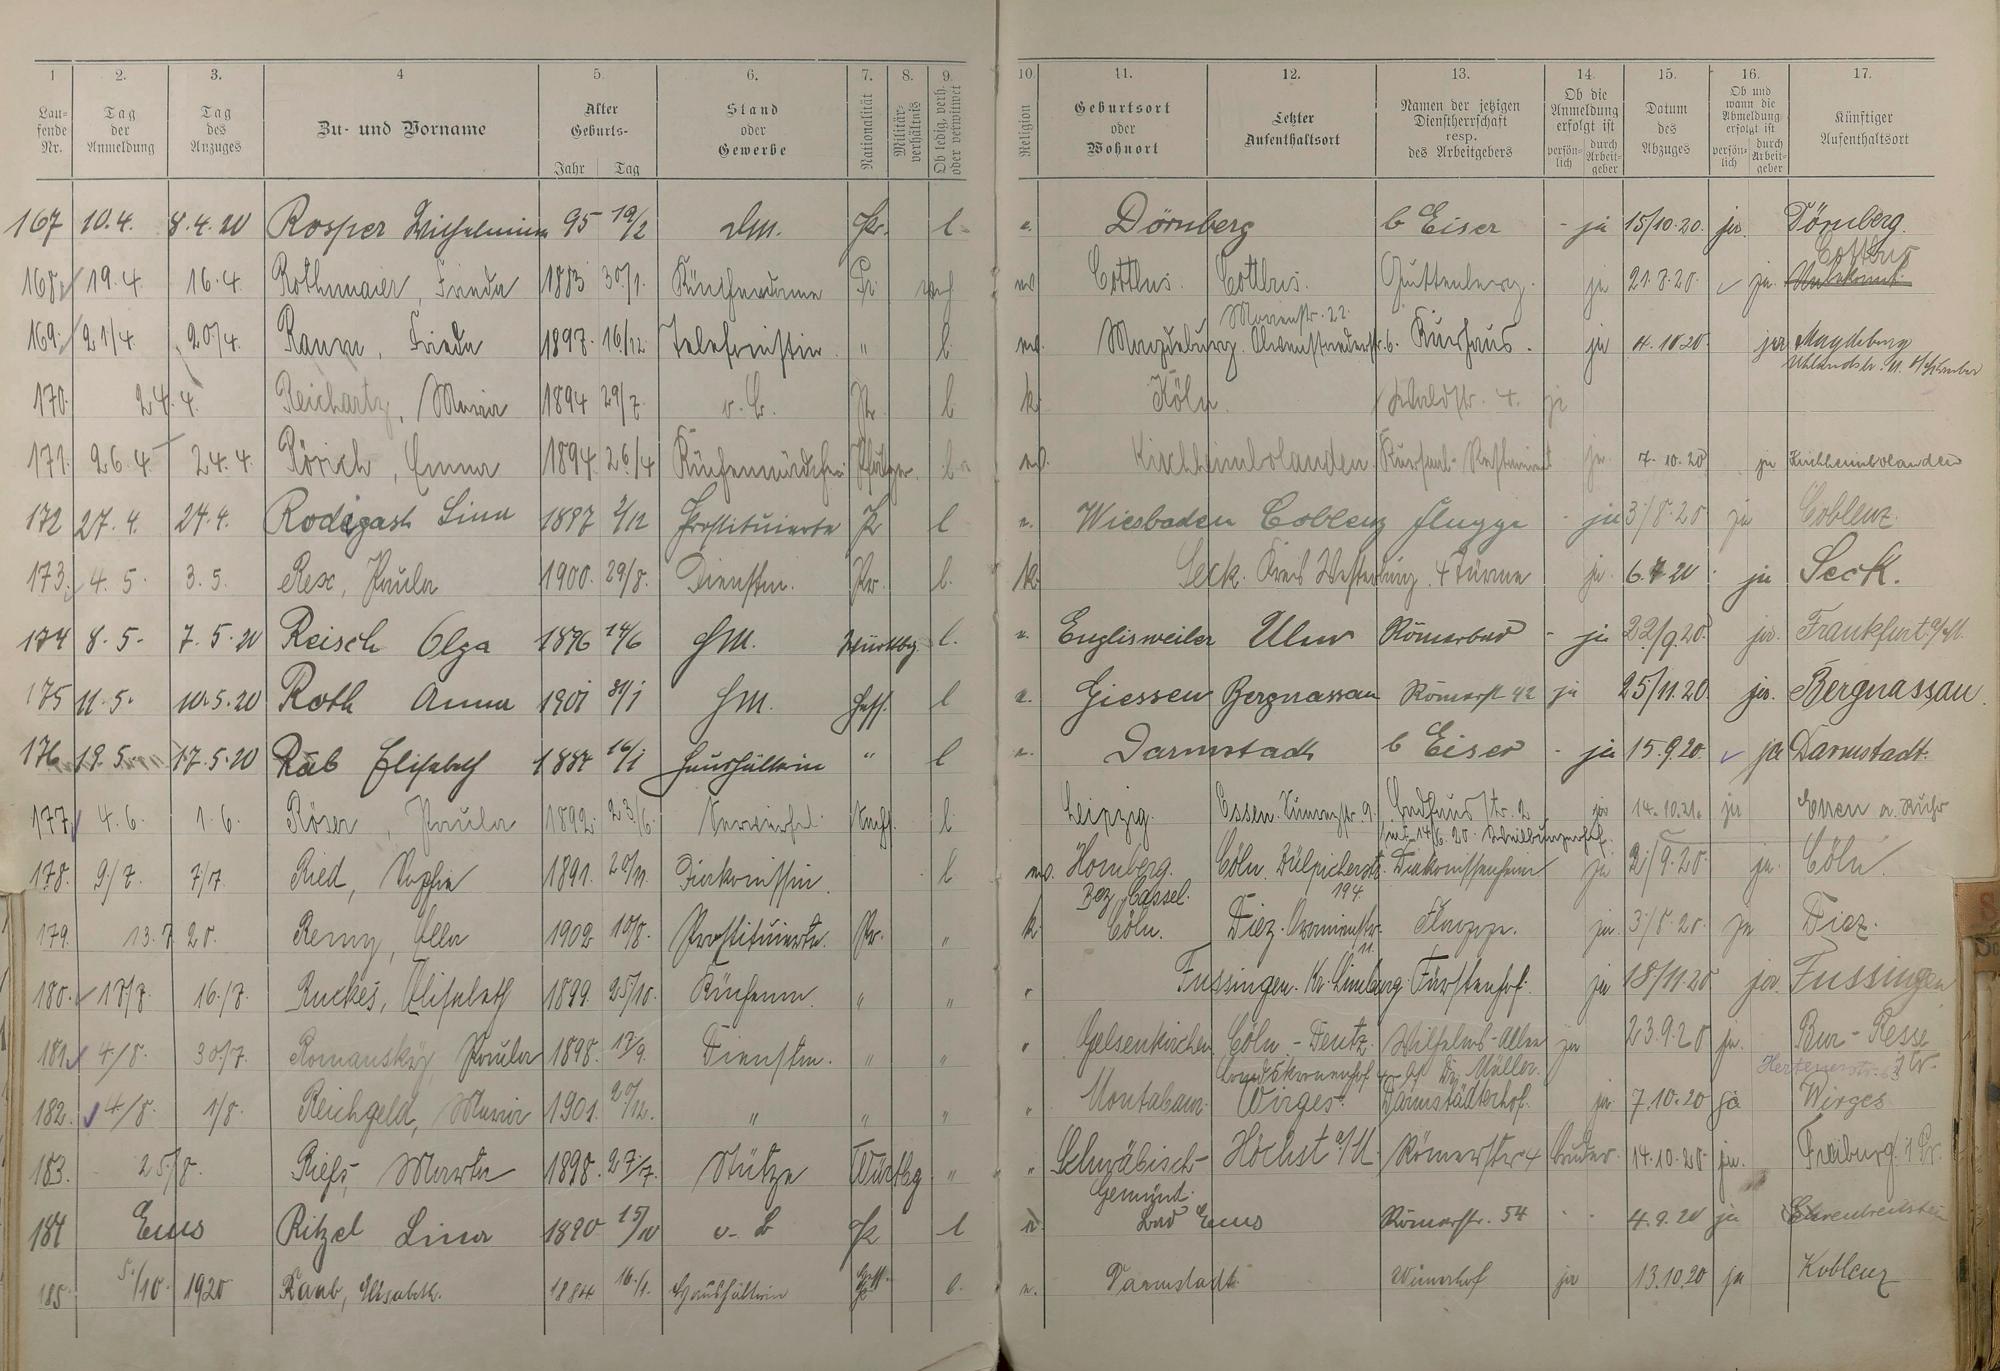 1 2. 3. 4 5. 6. 7. 8. 9. 10. 11. 12. 13. 14. 15. 16. 17.
Lau-
fende
Nr.
Tag
der
Anmeldung
Tag
des
Anzuges
Zu- und Vorname
Alter
Geburts-
Jahr Tag
Stand
oder
Gewerbe
Nationalität
Militär-
verhältnis
Ob ledig, verh.
oder verwitwet
Religion
Geburtsort
oder
Wohnort
Letzter
Aufenthaltsort
Namen der jetzigen
Dienstherrschaft
resp.
des Arbeitgebers
Ob die
Anmeldung
erfolgt ist
persön-
lich
durch
Arbeit-
geber
Datum
des
Abzuges
Ob und
wann die
Abmeldung
erfolgt ist
persön-
lich
durch
Arbeit-
geber
Künftiger
Aufenthaltsort
167 10.4. 8.4.20 Rosper Wilhelmine 95 19/2 Pr. l. Dörnberg b Eiser - ja 15/10.20. ja. Dörnberg.
Cottbus
168. 19.4. 16.4. Rothmaier, Frieda 1883 30/1. Pr. Cottbus. Cottbus. Guttenberg. ja 21.8.20. ja.
Marienstr. 22.
169. 21/4 20/4. Raum, Frieda 1897. 16/12 Telefonistin. " l. Magdeburg. Kurhaus. ja 4.10.20. ja Magdeburg
170. 24.4. Reichartz, Maria 1894 29/7. o. B. Pr. l. k. Köln. Waldstr. 4. ja
171. 26.4 24.4. Rörich, Emma 1894. 26/4 Küchenmädchen l. Kirchheimbolanden. ja 7.10.20 ja Kirchheimbolanden
172 27.4. 24.4. Rodigast Lina 1897 2/12 Prostituierte Pr l Wiesbaden Coblenz Flugge - ja 3/8.20 ja Coblenz.
173. 4.5. 3.5. Rex, Paula 1900. 29/8. Dienstm. Pr. l. k. Seck. Kreis Westerburg. 4 Türme ja. 6.7 20 ja Seck.
174 8.5- 7.5.20 Reisch Olga 1896 14/6 HM. Württbg. l. Englisweiler Ulm Römerbad - ja 22/9.20. ja. Frankfurt a/M.
175 11.5. 10.5.20 Roth Anna 1901 31/1 HM. Hess. l Giessen Bergnassau Römerst 42 ja 25/11.20. ja. Bergnassau.
176 19.5. 17.5.20 Rab Elisabeth 1884 16/1 Haushälterin " l Darmstadt b Eiser - ja 15.9.20. ja Darmstadt.
177. 4.6. 1.6. Röser, Paula 1892. 23/6. l. Leipzig. Essen. ja 14.10.20. ja Essen a. Ruhr
178. 9/7. 7/7. Ried, Sophie 1891. 20/11. Diakonissin. l Homberg. Cöln. Zülpicherstr. Diakonissenheim ja 21/9.20. ja. Cöln.
Bez Cassel. 194.
179. 13.7 20. Remy, Ella 1902 10/8. Prostituierte. Pr. " k. Cöln. Diez. Oranienstr. Flugge. ja. 3/8.20. ja Diez.
11.
180. 17/7. 16/7. Ruckes, Elisabeth 1899. 25/10. " " " Fussingen. Kr. Limburg Fürstenhof. ja 18/11.20 ja. Fussingen
181. 4/8. 30/7. Romansky, Paula 1898. 12/9. Dienstm. " " " Gelsenkirchen Cöln - Deutz. Wilhelms-Allee ja 23.9.20 ja. Bur-Resse
Dr. Müller. Hertenerstr. 63
182. 4/8. 1/8. Reichgeld, Maria 1901. 20/12. " " " " Montabaur. Wirges. Darmstädterhof. ja. 7.10.20 ja Wirges
183. 25/8. Riess, Marta 1898. 27/7. Stütze Württbg " " Schwäbisch- Höchst a/M. Römerstr 4 Bruder. 14.10.20. ja. Freiburg i Br.
Gemünd.
184 Ems Ritzel Lina 1890 15/10 o. B Pr l Bad Ems Römerstr. 54 - - 4.9.20 ja Ehrenbreitstein
185. 5/10. 1920 Raab, Elisabeth. 1884 16/1. Haushälterin l. Darmstadt. Wienerhof ja 13.10.20 ja Koblenz